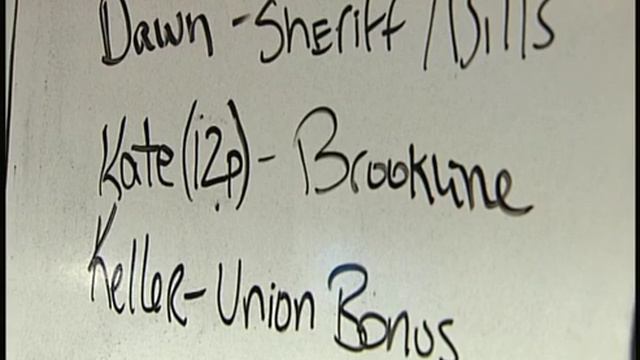 Dawn - Sheriff / Dills
Kate (12p) - Brookline
Keller - Union Bonus